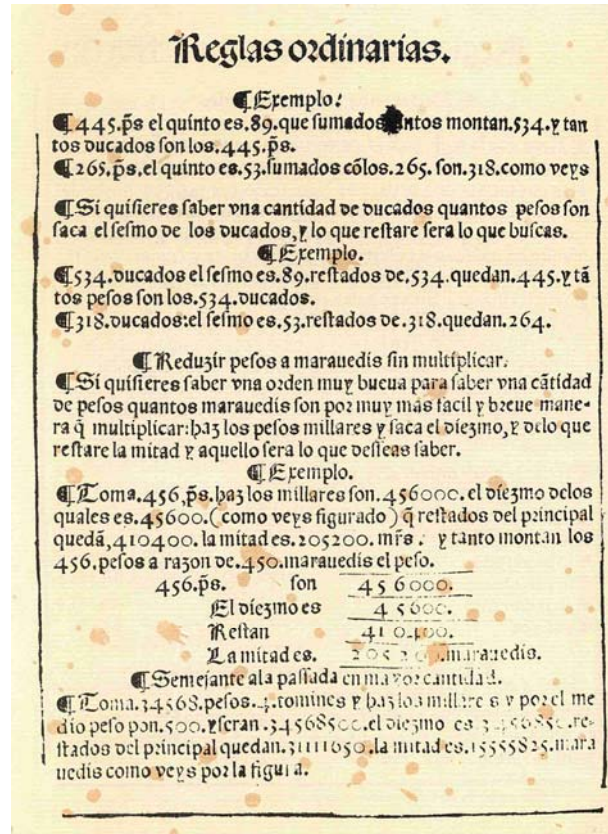 Reglas ordinarias.
¶Exemplo:
¶445.p̄s el quinto es.89.que sumados ntos montan.534.y tan
tos ducados son los.445.p̄s.
¶265.p̄s,el quinto es.53.sumados cõlos.265. son.318.como veys
¶Si quisieres saber vna cantidad de ducados quantos pesos son
saca el sesmo de los ducados,y lo que restare sera lo que buscas.
¶Exemplo.
¶534.ducados el sesmo es.89.restados de.534.quedan.445.y tã
tos pesos son los.534.ducados.
¶318.ducados:el sesmo es.53.restados de.318.quedan.264.
¶Reduzir pesos a marauedis sin multiplicar.
¶Si quisieres saber vna orden muy bueua para saber vna cãtidad
de pesos quantos marauedis son por muy más facil y breue mane-
ra q̃ multiplicar:haz los pesos millares y saca el diezmo,y delo que
restare la mitad y aquello sera lo que desseas saber.
¶Exemplo.
¶Toma.456,p̄s.haz los millares son.456000.el diezmo delos
quales es.45600.(como veys figurado) q̃ restados del principal
quedã,410400. la mitad es.205200. mr̄s. y tanto montan los
456.pesos a razon de.450.marauedis el peso.
456.p̄s. son 456000.
El diezmo es 45600.
Restan 410400.
La mitad es. 205200.marauedis.
¶Semejante ala passada en mayor cantidad.
¶Toma.34568.pesos.4.tomines y haz los millares y por el me
dio peso pon.500.y seran.34568500.el diezmo es.3456850.re-
stados del principal quedan.31111650.la mitad es.15555825.mara
uedis como veys por la figura.